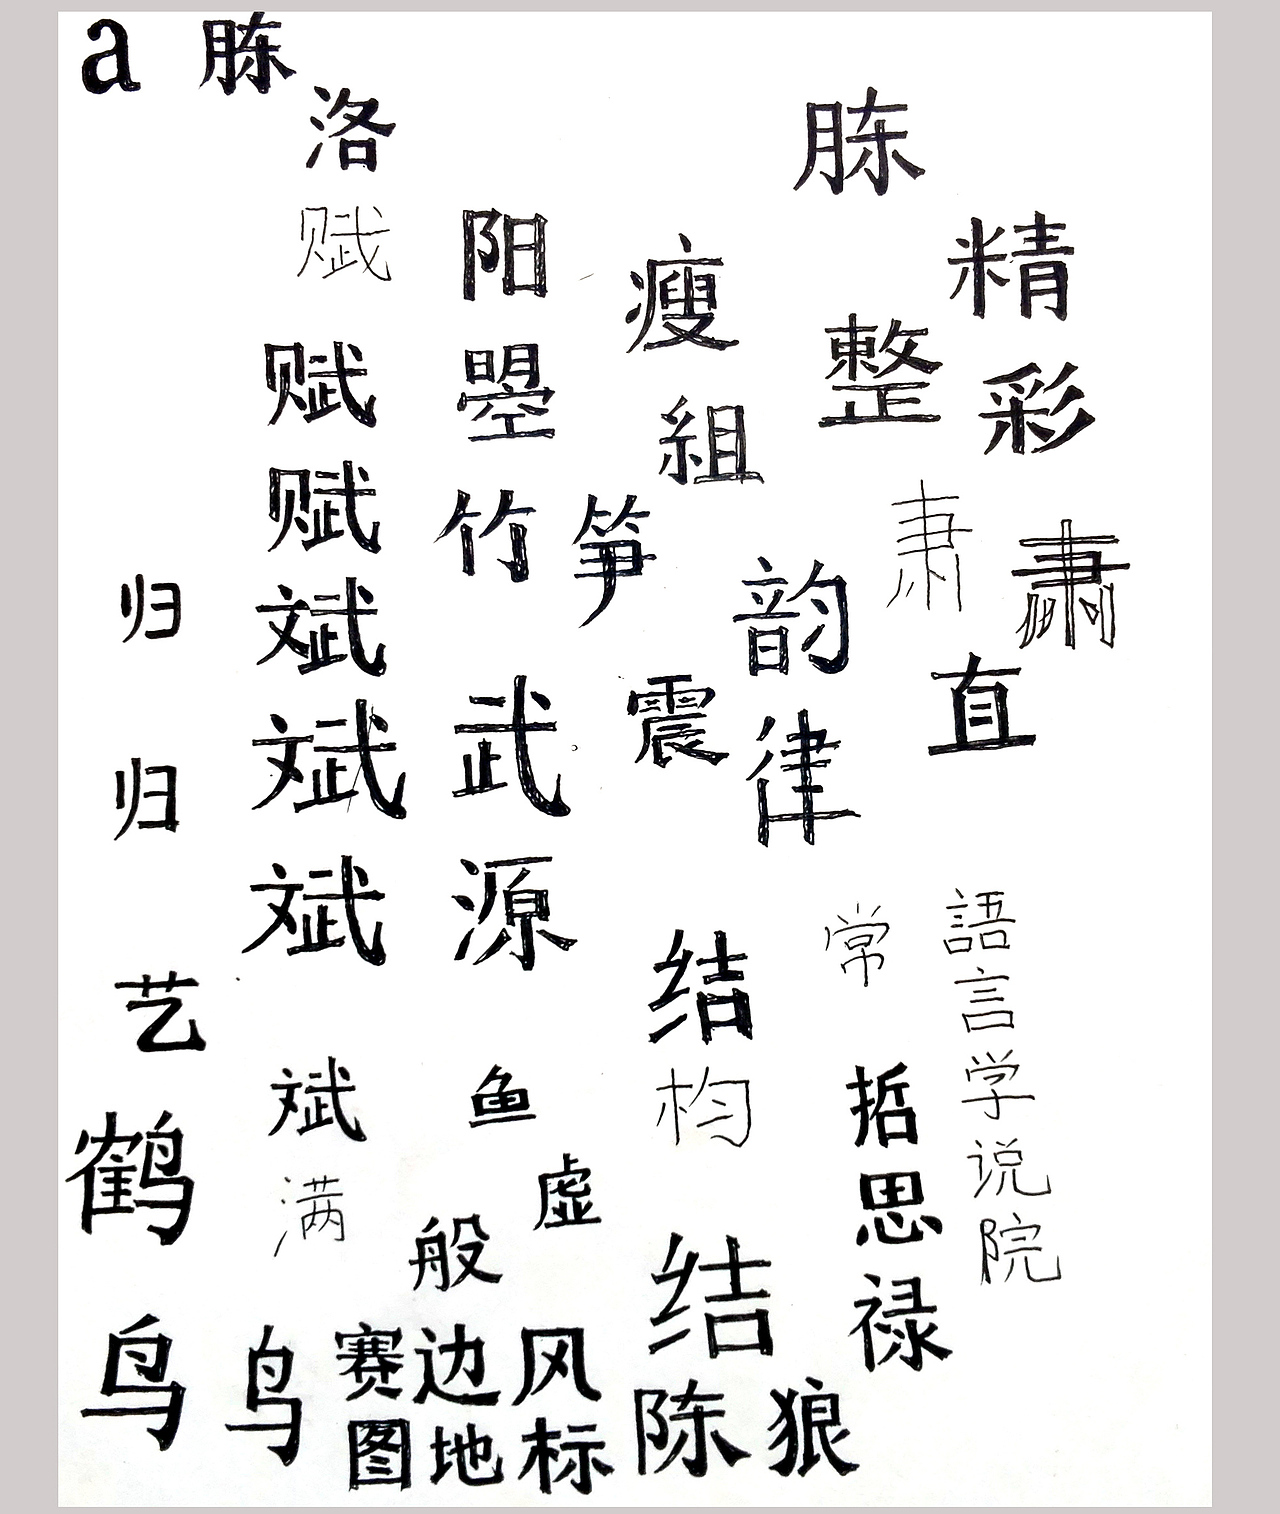 a 胨
洛
胨
赋 阳
瘦
精
赋 曌
整
組
彩
赋 竹 笋
肃 肃
归 斌
韵
斌 武 震 律 直
归
斌 源
结 常 語
言
艺
斌 鱼 哲 学
鹤 满
虚
思 说
般
院
结 禄
鸟 鸟 赛 边 风
图 地 标 陈 狼